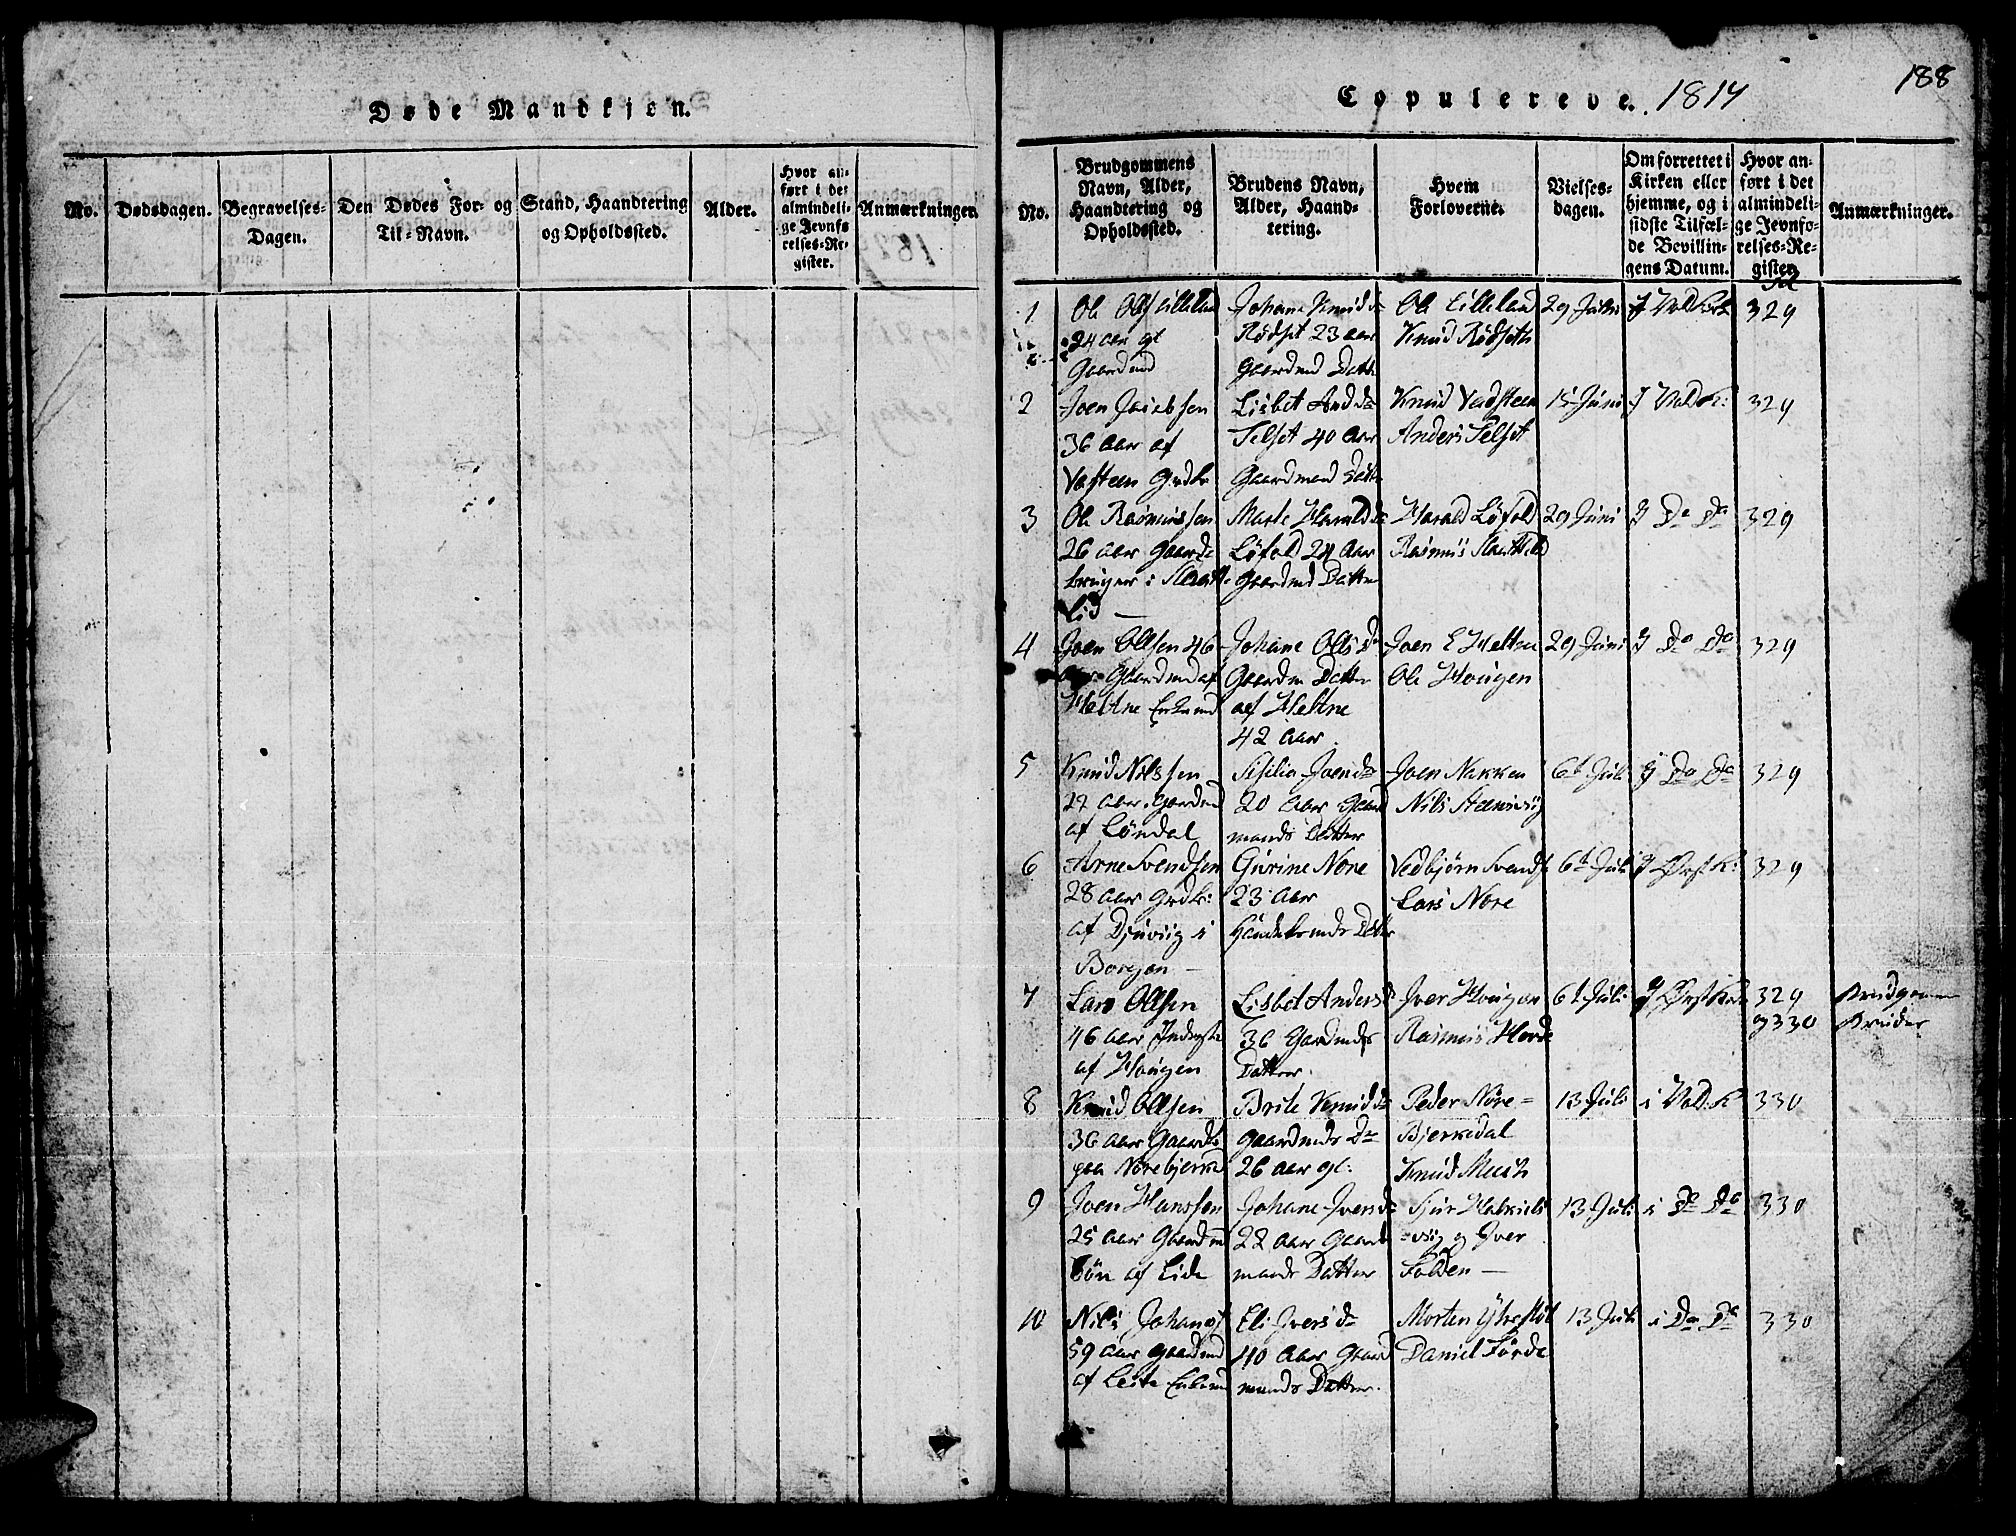 Døde Mandkjøn.
No.
Dødsdagen.
Begravelses-
Dagen.
Den Dødes For- og
Til-Navn.
Stand, Haandtering
og Opholdssted.
Alder.
Hvor an-
ført i det
almindeli-
ge Jevnfø-
relses-Re-
gister.
Anmærkninger.
188
Copulereve. 1817
No.
Brudgommens
Navn, Alder,
Haandtering og
Opholdssted.
Brudens Navn,
Alder, Haand-
tering.
Hvem
Forloverne.
Vielses-
dagen.
Om forrettet i
Kirken eller
hjemme, og i
sidste Tilfæl-
de Bevillin-
gens Datum.
Hvor an-
ført i det
almindeli-
ge Jevnfø-
relses-Re-
gister.
Anmærkninger.
1
Ole Olss Lillelied
24 aar gl
Gaardmd
Johane Knudsd
Rødset 23 aar
Gaardmd Datt
Ole Lillelied
Knud Rødseth
29 Juni
J Vold Kirk
329
2
Joen Jacobsen
36 Aar af
Vasteen Grdbr
Lisbet Andd
Selset 40 Aar
Gaardmand Datt
Knud Vadsteen
Anders Selset
15 Juni
J Vold K:
329
3
Ole Rasmussen
26 aar Gaard-
bruger i Slaatte
Lid —
Marte Haraldsd
Løfold 24 Aar
Gaardmd Datter
Harald Løfold
Rasmus Slaattelid
29 Juni
J Do Do
329
4
Joen Olsen 46
aar Gaardmd af
Heltne Enkemd
Johane Olsd
Gaardm Datter
af Heltne
42 Aar.
Joen E Heltne
Ole Hougen
29 Juni
J Do Do
329
5
Knud Nilssen
27 Aar. Gaardmd
af Løndal
Sisilia Joensd
20 Aar Gaard
mands Datter
Joen Nakken
Nils Steensvig
6t Juli
J Do Do
329
6
Arne Svendsen
28 Aar Grdbr:
af Djuvig i
Borgen —
Gurine Nore
23 Aar
Datter
Vedbjørn Svends
Lars Nore
6t Juli
J Ørst K:
329
7
Lars Olsen
46 Aar Inderste
af Hougen
Lisbet Andersd
36 Gaardmds
Datter.
Iver Hougen
Rasmus Hovde
6t Juli
J Ørst Kir
329
og 330
Brudgommen
8
Knud Olsen
36 Aar Gaardbr
paa Nørebjerke
Brite Knudsd
Gaardmds Dr
26 Aar gl:
Peder Nøre=
Bjerkedal
Knud
13 Juli
i Vold K
330
9
Joen Hanssen
25 Aar Gaardm
Søn af Lide
Johane Iversd
22 Aar Gaard
mands Datter
Sjur Habriels
=vig og Iver
Folden —
13 Juli
i Do Do
330
10
Nils Johans
59 Aar Gaardmd
af Leite Enkemd
Eli Iversd
40 Aar Gaard
mands Datter.
Morten
Daniel Førde
13 Juli
i Do Do
330